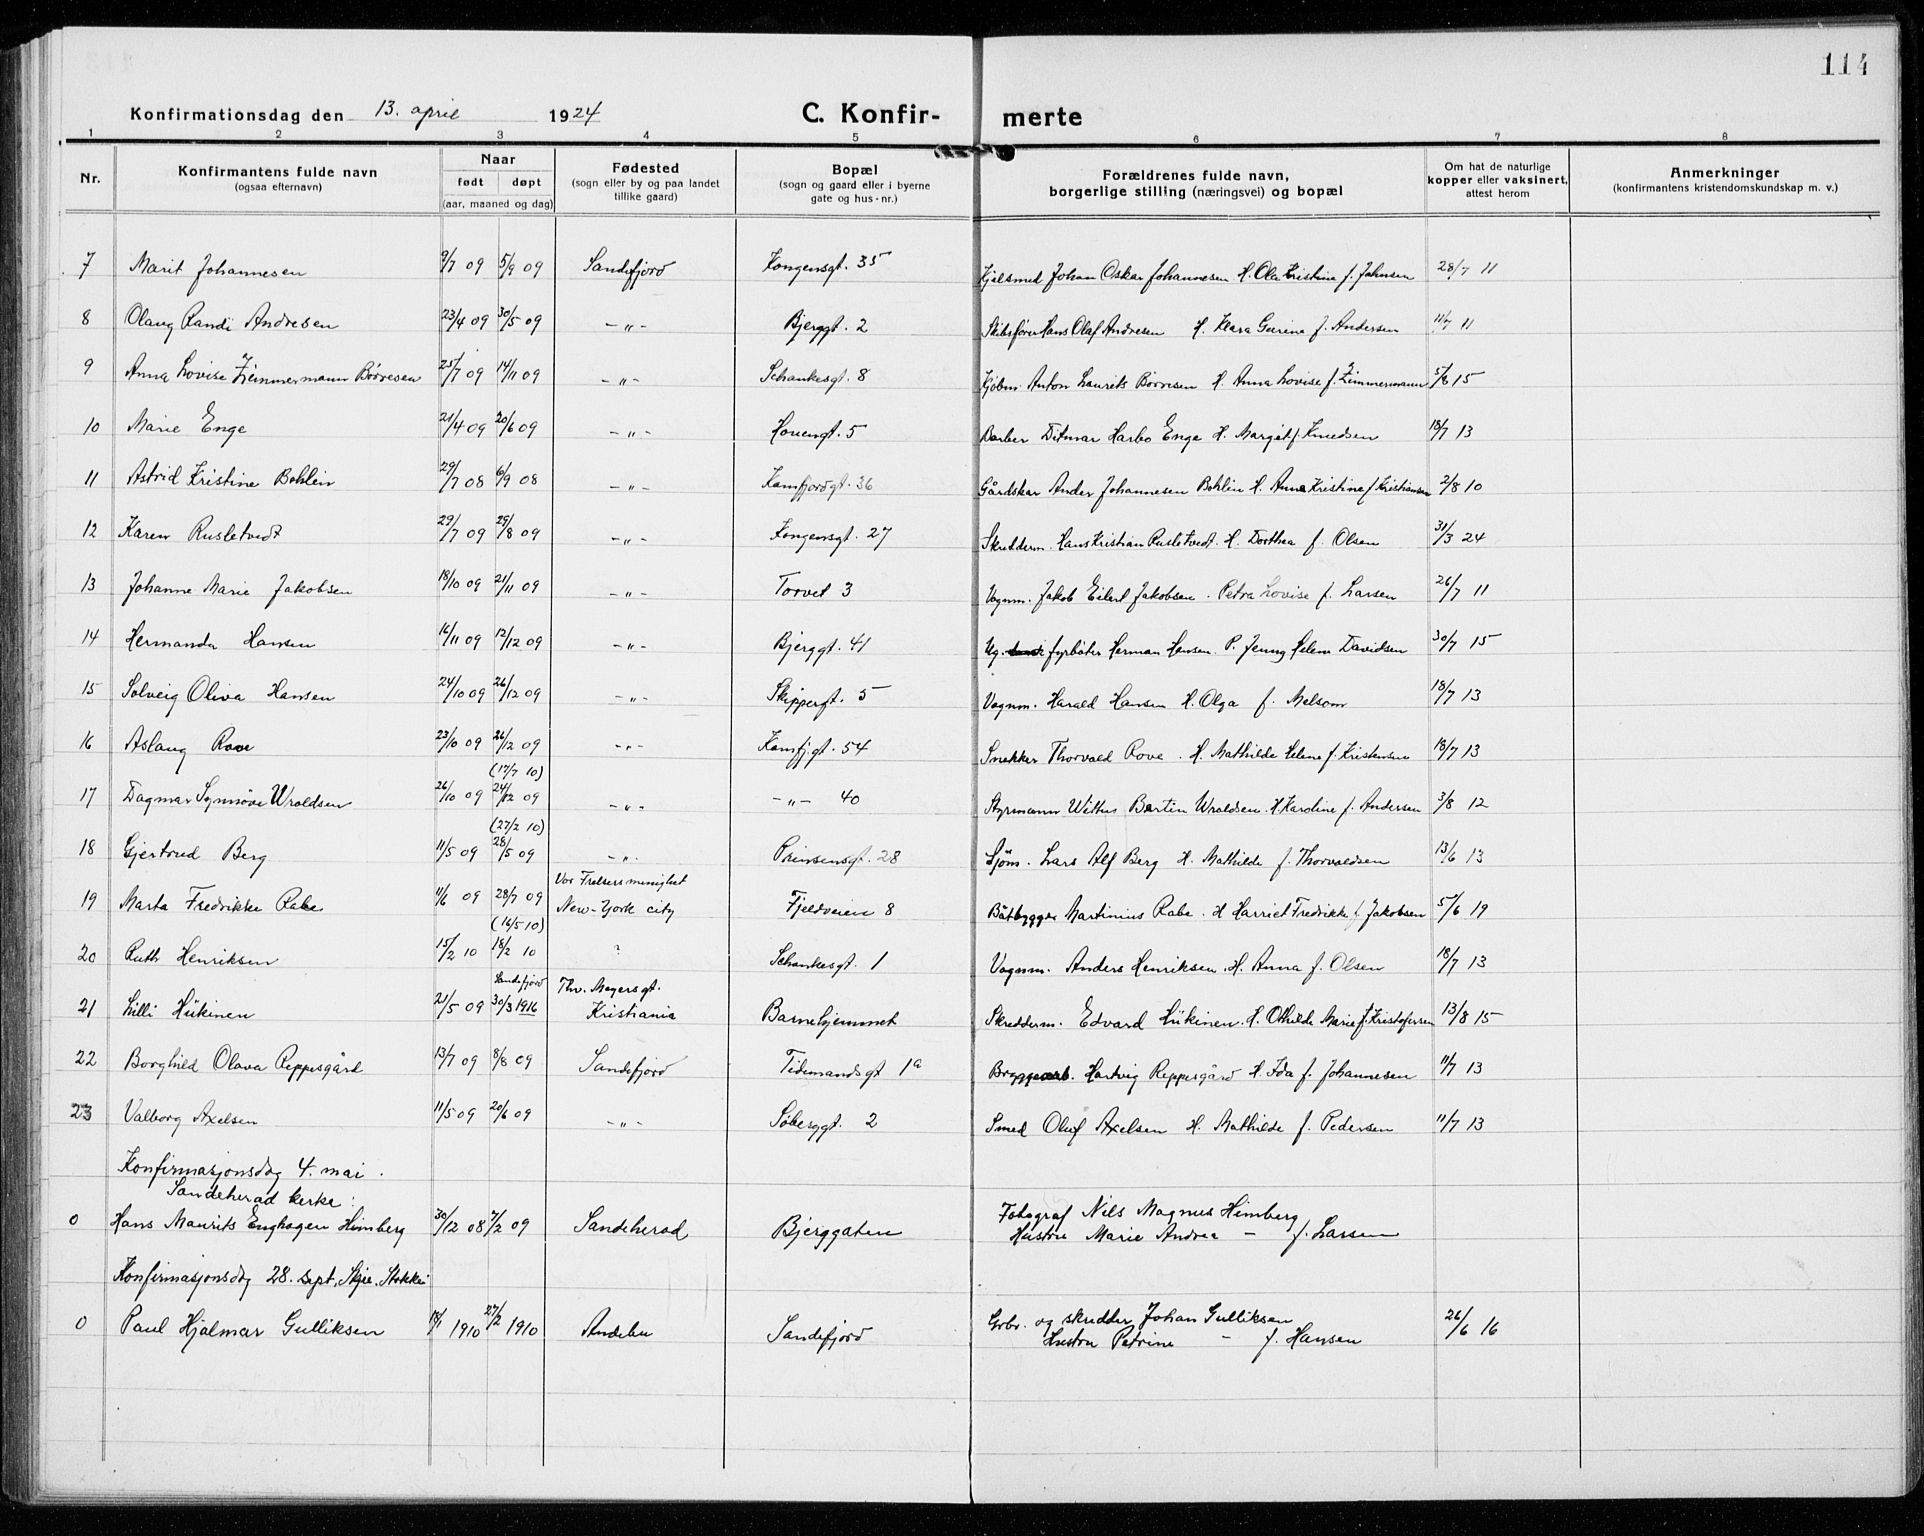 114
Konfirmationsdag den 13. april 1924 C. Konfir- merte
1 2 3 4 5 6 7 8
Nr. Konfirmantens fulde navn (ogsaa efternavn) Naar født døpt (aar, maaned og dag) Fødested (sogn eller by og paa landet tillike gaard) Bopæl (sogn og gaard eller i byerne gate og hus-nr.) Forældrenes fulde navn, borgerlige stilling (næringsvei) og bopæl Om hat de naturlige kopper eller vaksinert, attest herom Anmerkninger (konfirmantens kristendomskundskap m. v.)
7 Marit Johannesen 9/7 09 5/9 09 Sandefjord Kongensgt. 35 Hjulsmed Johan Oskar Johannesen H. Ola Kristine f. Johnsen 28/7 11
8 Olaug Randi Andresen 23/4 09 30/5 09 -"- Bjerggt. 2 Skibsfører Hans Olaf Andresen H. Klara Gurine f. Andersen 11/7 11
9 Anna Lovise Zimmermann Børresen 25/7 09 14/11 09 -"- Schankesgt. 8 Kjøbm. Anton Laurits Børresen H. Anna Lovise f. Zimmermann 5/8 15
10 Marie Enge 21/4 09 20/6 09 -"- Houengt. 5 Barber Ditmar Harbo Enge H. Margit f. Knudsen 18/7 13
11 Astrid Kristine Bohlin 29/7 08 6/9 08 -"- Kamfjordgt. 36 Gårdskar Ander Johannesen Bohlin H. Anna Kristine f. Kristiansen 2/8 10
12 Karen Rusletvedt 29/7 09 29/8 09 -"- Kongensgt. 27 Skredderm. Hans Kristian Rusletvedt. H. Dorthea f. Olsen 31/3 24
13 Johanne Marie Jakobsen 18/10 09 21/11 09 -"- Torvet 3 Vognm. Jakob Eilert Jakobsen. Petra Lovise f. Larsen 26/7 11
14 Hermanda Hansen 16/11 09 12/12 09 -"- Bjerggt. 41 Ug. fyrbøter Herman Hansen. P. Jenny Helene Davidsen 30/7 15
15 Solveig Oliva Hansen 24/10 09 26/12 09 -"- Skippergt. 5 Vognm. Harald Hansen H. Olga f. Melsom 18/7 13
16 Aslaug Rove 23/10 09 26/12 09 -"- Kamfjgt. 54 Snekker Thorvald Rove. H. Mathilde Helene f. Kristensen 18/7 13
(17/7 10)
17 Dagmar Synnøve Wroldsen 26/10 09 24/12 09 -"- -"- 40 Styrmann Withus Bertin Wroldsen. H Karoline f. Andersen 3/8 12
(27/2 10)
18 Gjertrud Berg 11/5 09 28/5 09 -"- Prinsensgt. 28 Sjøm. Lars Alf Berg H. Mathilde f. Thorvaldsen 13/6 13
Vor Frelsers menighet
19 Marta Fredrikke Rabe 11/6 09 28/7 09 New-York city Fjeldveien 8 Båtbygger Martinius Rabe. H Harriet Fredrikke f. Jakobsen 5/6 19
(16/5 10)
20 Ruth Henriksen 15/2 10 18/2 10 ? Schankesgt. 1 Vognm. Anders Henriksen. H. Anna f. Olsen 18/7 13
Sandefjord Thv. Meyersgt.
21 Lilli Hükinen 21/5 09 30/3 1916 Kristiania Barnehjemmet Skredderm. Edvard Hükinen. H. Othilde Marie f. Kristofersen 13/8 15
22 Borghild Olava Reppesgård 13/7 09 8/8 09 Sandefjord Tidemandsgt 1a Bryggearb. Hartvig Reppesgård H. Ida f. Johannesen 11/7 13
23 Valborg Axelsen 11/5 09 20/6 09 -"- Søberggt. 2 Smed Oluf Axelsen H. Mathilde f. Pedersen 11/7 13
Konfirmasjonsdag 4. mai.
Sandeherad kirke:
0 Hans Maurits Enghagen Himberg 30/12 08 7/2 09 Sandeherad Bjerggaten Fotograf Nils Magnus Himberg
Hustru Marie Andrea - f. Larsen
Konfirmasjonsdag 28. sept. Skjee. Stokke:
0 Paul Hjalmar Gulliksen 18/1 1910 27/2 1910 Andebu Sandefjord Grbr. og skredder Johan Gulliksen 26/6 16
Hustru Petrine - f. Hansen